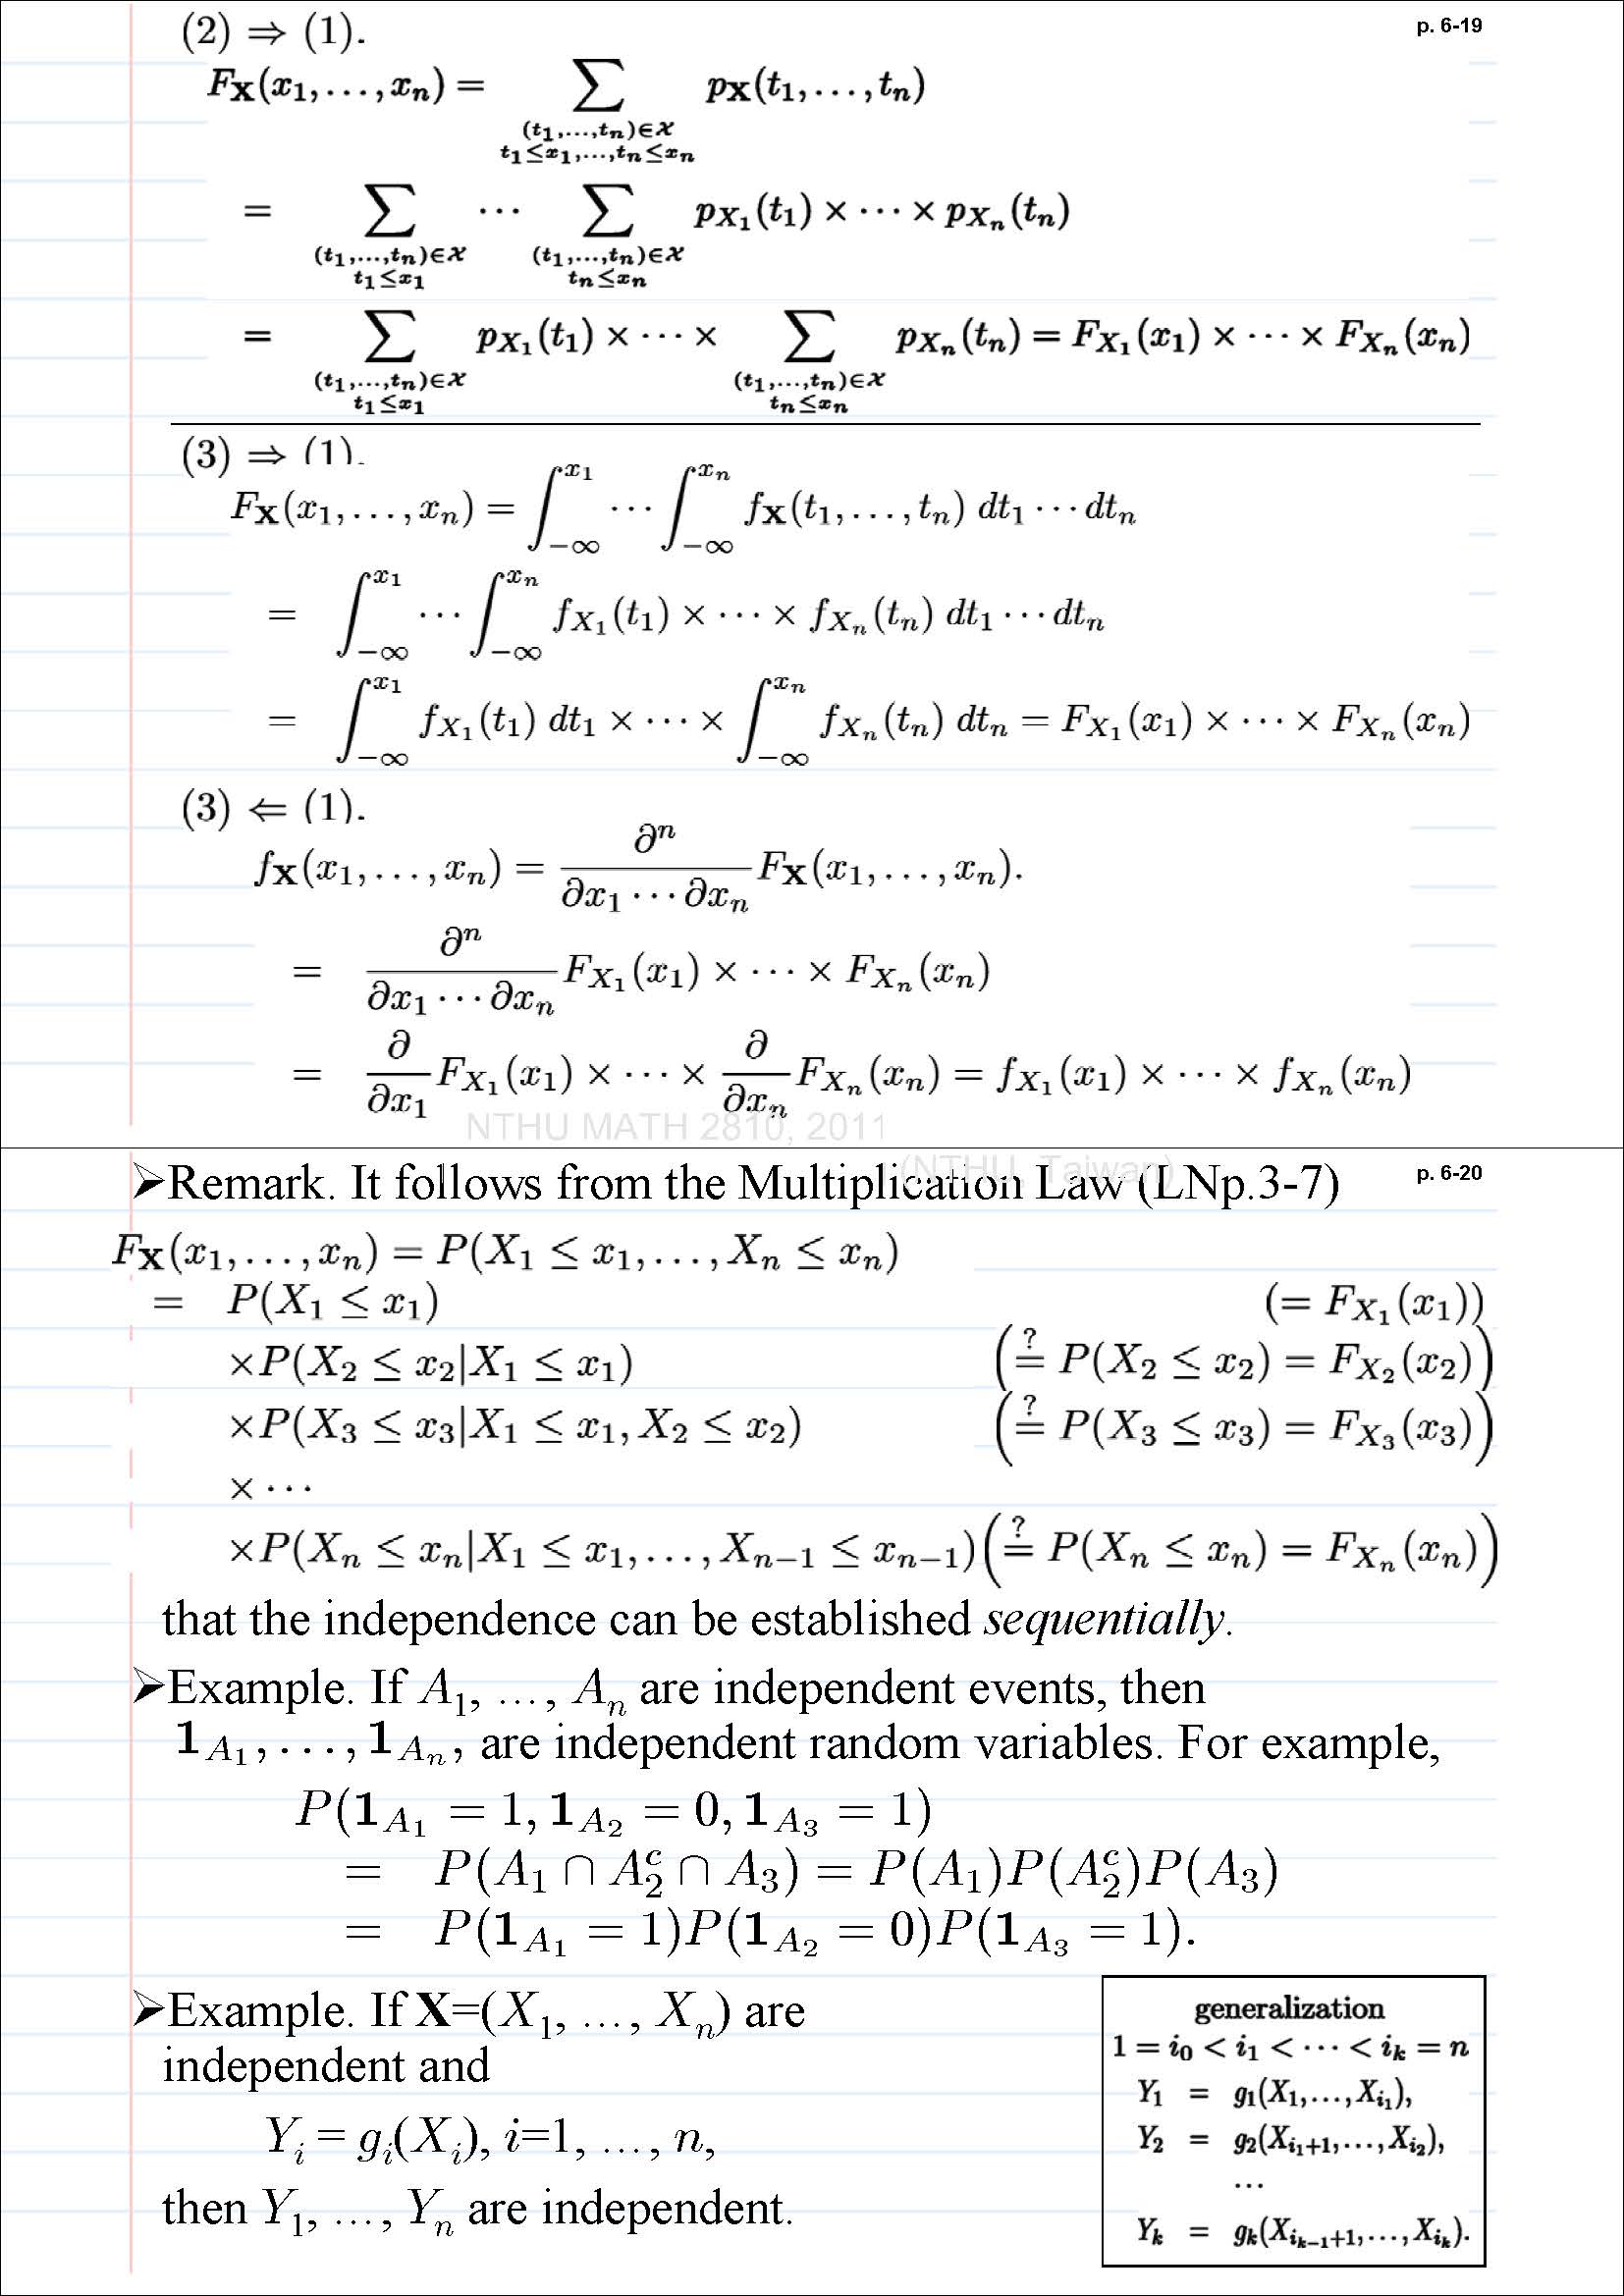 p. 6-19
(2) ⇒ (1).
F_𝐗(x₁, …, xₙ) = ∑_{(t₁,…,tₙ)∈𝒳, t₁≤x₁,…,tₙ≤xₙ} p_𝐗(t₁, …, tₙ)
= ∑_{(t₁,…,tₙ)∈𝒳, t₁≤x₁} ⋯ ∑_{(t₁,…,tₙ)∈𝒳, tₙ≤xₙ} p_{X₁}(t₁) × ⋯ × p_{Xₙ}(tₙ)
= ∑_{(t₁,…,tₙ)∈𝒳, t₁≤x₁} p_{X₁}(t₁) × ⋯ × ∑_{(t₁,…,tₙ)∈𝒳, tₙ≤xₙ} p_{Xₙ}(tₙ) = F_{X₁}(x₁) × ⋯ × F_{Xₙ}(xₙ)
(3) ⇒ (1).
F_𝐗(x₁, …, xₙ) = ∫_{−∞}^{x₁} ⋯ ∫_{−∞}^{xₙ} f_𝐗(t₁, …, tₙ) dt₁ ⋯ dtₙ
= ∫_{−∞}^{x₁} ⋯ ∫_{−∞}^{xₙ} f_{X₁}(t₁) × ⋯ × f_{Xₙ}(tₙ) dt₁ ⋯ dtₙ
= ∫_{−∞}^{x₁} f_{X₁}(t₁) dt₁ × ⋯ × ∫_{−∞}^{xₙ} f_{Xₙ}(tₙ) dtₙ = F_{X₁}(x₁) × ⋯ × F_{Xₙ}(xₙ)
(3) ⇐ (1).
f_𝐗(x₁, …, xₙ) = ∂ⁿ/(∂x₁ ⋯ ∂xₙ) F_𝐗(x₁, …, xₙ).
= ∂ⁿ/(∂x₁ ⋯ ∂xₙ) F_{X₁}(x₁) × ⋯ × F_{Xₙ}(xₙ)
= ∂/∂x₁ F_{X₁}(x₁) × ⋯ × ∂/∂xₙ F_{Xₙ}(xₙ) = f_{X₁}(x₁) × ⋯ × f_{Xₙ}(xₙ)
NTHU MATH 2810, 2011
(NTHU, Taiwan)
p. 6-20
➢Remark. It follows from the Multiplication Law (LNp.3-7)
F_𝐗(x₁, …, xₙ) = P(X₁ ≤ x₁, …, Xₙ ≤ xₙ)
= P(X₁ ≤ x₁) (= F_{X₁}(x₁))
×P(X₂ ≤ x₂|X₁ ≤ x₁) (≟ P(X₂ ≤ x₂) = F_{X₂}(x₂))
×P(X₃ ≤ x₃|X₁ ≤ x₁, X₂ ≤ x₂) (≟ P(X₃ ≤ x₃) = F_{X₃}(x₃))
× ⋯
×P(Xₙ ≤ xₙ|X₁ ≤ x₁, …, Xₙ₋₁ ≤ xₙ₋₁) (≟ P(Xₙ ≤ xₙ) = F_{Xₙ}(xₙ))
that the independence can be established sequentially.
➢Example. If A₁, …, Aₙ are independent events, then
𝟏_{A₁}, …, 𝟏_{Aₙ}, are independent random variables. For example,
P(𝟏_{A₁} = 1, 𝟏_{A₂} = 0, 𝟏_{A₃} = 1)
= P(A₁ ∩ A₂ᶜ ∩ A₃) = P(A₁)P(A₂ᶜ)P(A₃)
= P(𝟏_{A₁} = 1)P(𝟏_{A₂} = 0)P(𝟏_{A₃} = 1).
➢Example. If 𝐗=(X₁, …, Xₙ) are
independent and
Yᵢ = gᵢ(Xᵢ), i=1, …, n,
then Y₁, …, Yₙ are independent.
generalization
1 = i₀ < i₁ < ⋯ < iₖ = n
Y₁ = g₁(X₁, …, X_{i₁}),
Y₂ = g₂(X_{i₁+1}, …, X_{i₂}),
⋯
Yₖ = gₖ(X_{iₖ₋₁+1}, …, X_{iₖ}).